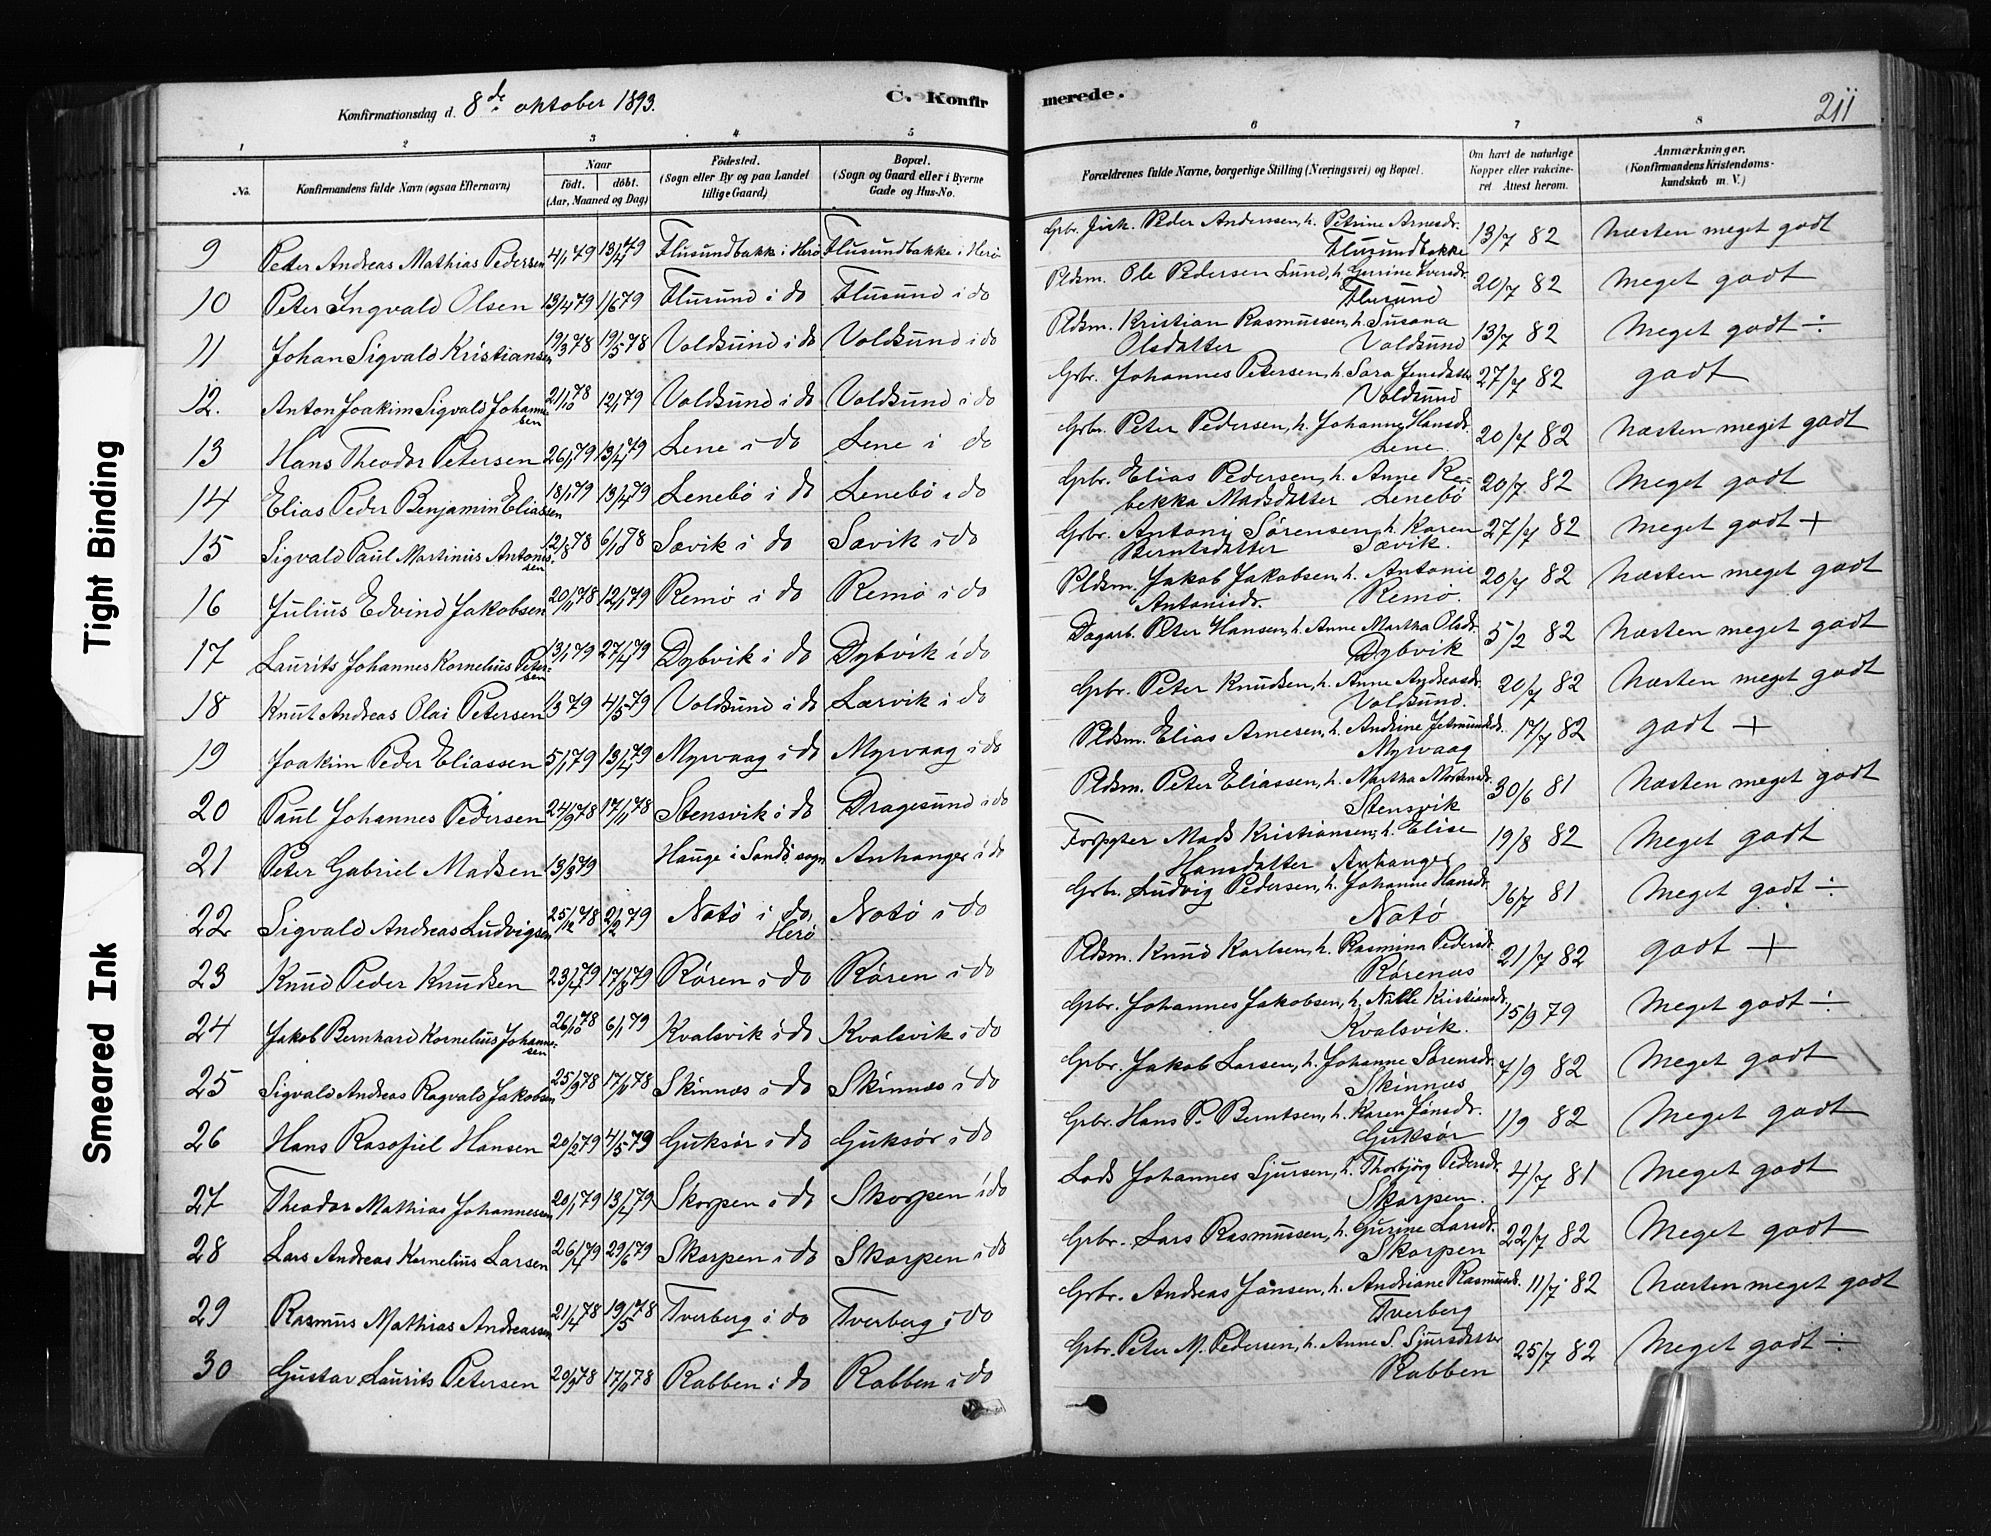 Tight Binding
Smeared Ink
Konfirmationsdag d. 8de oktober 1893.
C. Konfirmerede.
211
1 2 3 4 5 6 7 8
No.
Konfirmandens fulde Navn (ogsaa Efternavn)
Naar
födt. döbt.
(Aar, Maaned og Dag)
Födested.
(Sogn eller By og paa Landet
tillige Gaard)
Bopæl.
(Sogn og Gaard eller i Byerne
Gade og Hus-No.
Forældrenes fulde Navne, borgerlige Stilling (Næringsvei) og Bopæl.
Om havt de naturlige
Kopper eller vakcine-
ret Attest herom.
Anmærkninger.
(Konfirmandens Kristendoms-
kundskab m. V.)
9 Peter Andreas Mathias Pedersen 4/1 79 13/4 79 Flusundbakk i Herö Flusundbakke i Herö Grbr. Peder Andersen, h. Petrine Arnesdr. Flusundbakke 13/7 82 Næsten meget godt
10 Peter Ingvald Olsen 13/4 79 1/6 79 Flusund i do Flusund i do Pldsm. Ole Pedersen Lund, h. Gurine Iversdr. Flusund 20/7 82 Meget godt
11 Johan Sigvald Kristiansen 19/3 78 19/5 78 Voldsund i do Voldsund i do Pldsm. Kristian Rasmussen, h. Susana Olsdatter Voldsund 13/7 82 Meget godt ÷
12. Anton Joakim Sigvald Johannesen 21/10 78 12/1 79 Voldsund i do Voldsund i do Grbr. Johannes Petersen, h. Sara Jensdatter Voldsund 27/7 82 godt
13 Hans Theodor Petersen 26/1 79 13/4 79 Lene i do Lene i do Grbr. Peter Pedersen, h. Johanne Hansdr. Lene. 20/7 82 Næsten meget godt
14 Elias Peder Benjamin Eliassen 18/1 79 13/4 79 Lenebö i do Lenebö i do Grbr. Elias Pedersen, h. Anne Rebekka Madsdatter Lenebö 20/7 82 Meget godt
15 Sigvald Paul Martinus Antonissen 12/8 78 6/10 78 Sævik i do Sævik i do Grbr. Antoni Sörensen, h. Karen Berntsdatter Sævik. 27/7 82 Meget godt +
16 Julius Edvind Jakobsen 20/11 78 12/1 79 Remö i do Remö i do Pldsm. Jakob Jakobsen, h. Antonie Antonisdr. Remö. 20/7 82 Næsten meget godt
17 Laurits Johannes Kornelius Petersen 13/1 79 27/4 79 Dybvik i do Dybvik i do Dagarb. Peter Hansen, h. Anne Martha Olsdr. Dybvik 5/2 82 Næsten meget godt
18 Knut Andreas Olai Petersen 1/3 79 4/5 79 Voldsund i do Larvik i do Grbr. Peter Knudsen, h. Anne Andreasdr. Voldsund. 20/7 82 Næsten meget godt
19 Joakim Peder Eliassen 5/1 79 13/4 79 Myrvaag i do Myrvaag i do Pldsm. Elias Arnesen, h. Andrine Myrvaag 17/7 82 godt +
20 Paul Johannes Pedersen 24/9 78 17/11 78 Stensvik i do Dragesund i do Pldsm. Peter Eliassen, h. Martha Mortensdr. Stensvik 30/6 81 Næsten meget godt
21 Peter Gabriel Madsen 13/3 79 Hauge i Sands sogn Anhanger i do Forpagter Mads Kristiansen, h. Elise Hansdatter Anhanger 19/8 82 Meget godt
22 Sigvald Andreas Ludvigsen 25/12 78 2/2 79 Notö i do, Herö Notö i do Grbr. Ludvig Pedersen, h. Johanne Hansdr. Notö 16/7 81 Meget godt ÷
23 Knud Peder Knudsen 23/4 79 17/8 79 Rören i do Rören i do Pldsm. Knud Karlsen, h. Rasmina Pedersdr. Rörenas 21/7 82 godt +
24 Jakob Bernhard Kornelius Johannesen 26/10 78 6/1 79 Kvalsvik i do Kvalsvik i do Grbr. Johannes Jakobsen, h. Nille Kristiansdr. Kvalsvik. 15/9 79 Meget godt ÷
25 Sigvald Andreas Ragvald Jakobsen 25/9 78 17/11 78 Skinnæs i do Skinnæs i do Grbr. Jakob Larsen, h. Johanne Sörensdr. Skinnæs 7/9 82 Meget godt
26 Hans Rasofiel Hansen 20/2 79 4/5 79 Guksör i do Guksör i do Grbr. Hans P. Berntsen, h. Karen Jönsdr. Guksör 1/9 82 Meget godt
27 Theodor Mathias Johannesen 20/1 79 13/4 79 Skorpen i do Skorpen i do Lods Johannes Sjursen, h. Thorbjörg Pedersdr. Skorpen. 4/7 81 Meget godt
28 Lars Andreas Kornelius Larsen 26/4 79 29/6 79 Skorpen i do Skorpen i do Grbr. Lars Rasmussen, h. Gurine Larsdr. Skorpen 22/7 82 Meget godt
29 Rasmus Mathias Andreassen 21/4 78 19/5 78 Tverberg i do Tverberg i do Grbr. Andreas Jönsen, h. Andriane Rasmusdr. Tverberg 11/7 82 Næsten meget godt
30 Gustav Laurits Petersen 20/9 78 17/11 78 Rabben i do Rabben i do Grbr. Peter M. Pedersen, h. Anne S. Sjursdatter Rabben 25/7 82 Meget godt ÷